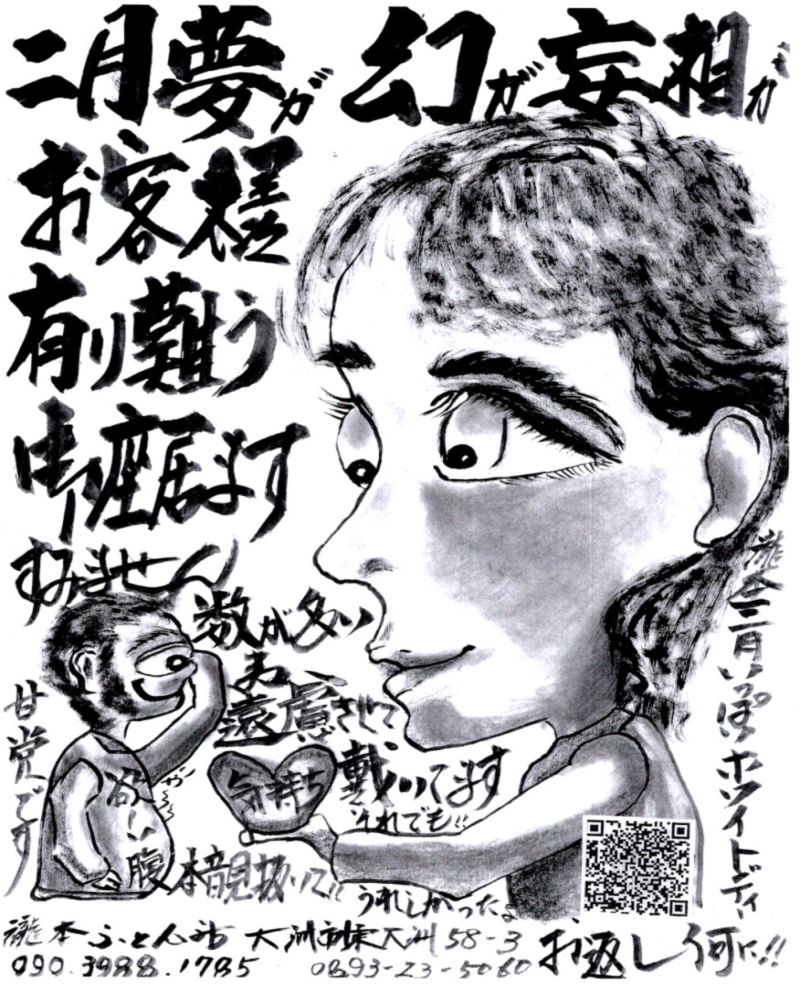 二月夢が幻が妄想が
お客様
有り難う
御座居ます
すみません
数が多い
為
遠慮させて
戴いてます
それでも!!
気持ち
うれしかったよ
甘党です
欲しい
腹
本音見抜いて!!
三月いっぱいホワイトディー
お返し何に!!
瀧本ふとん店 大洲市東大洲58-3
090.3988.1785 0893-23-5060